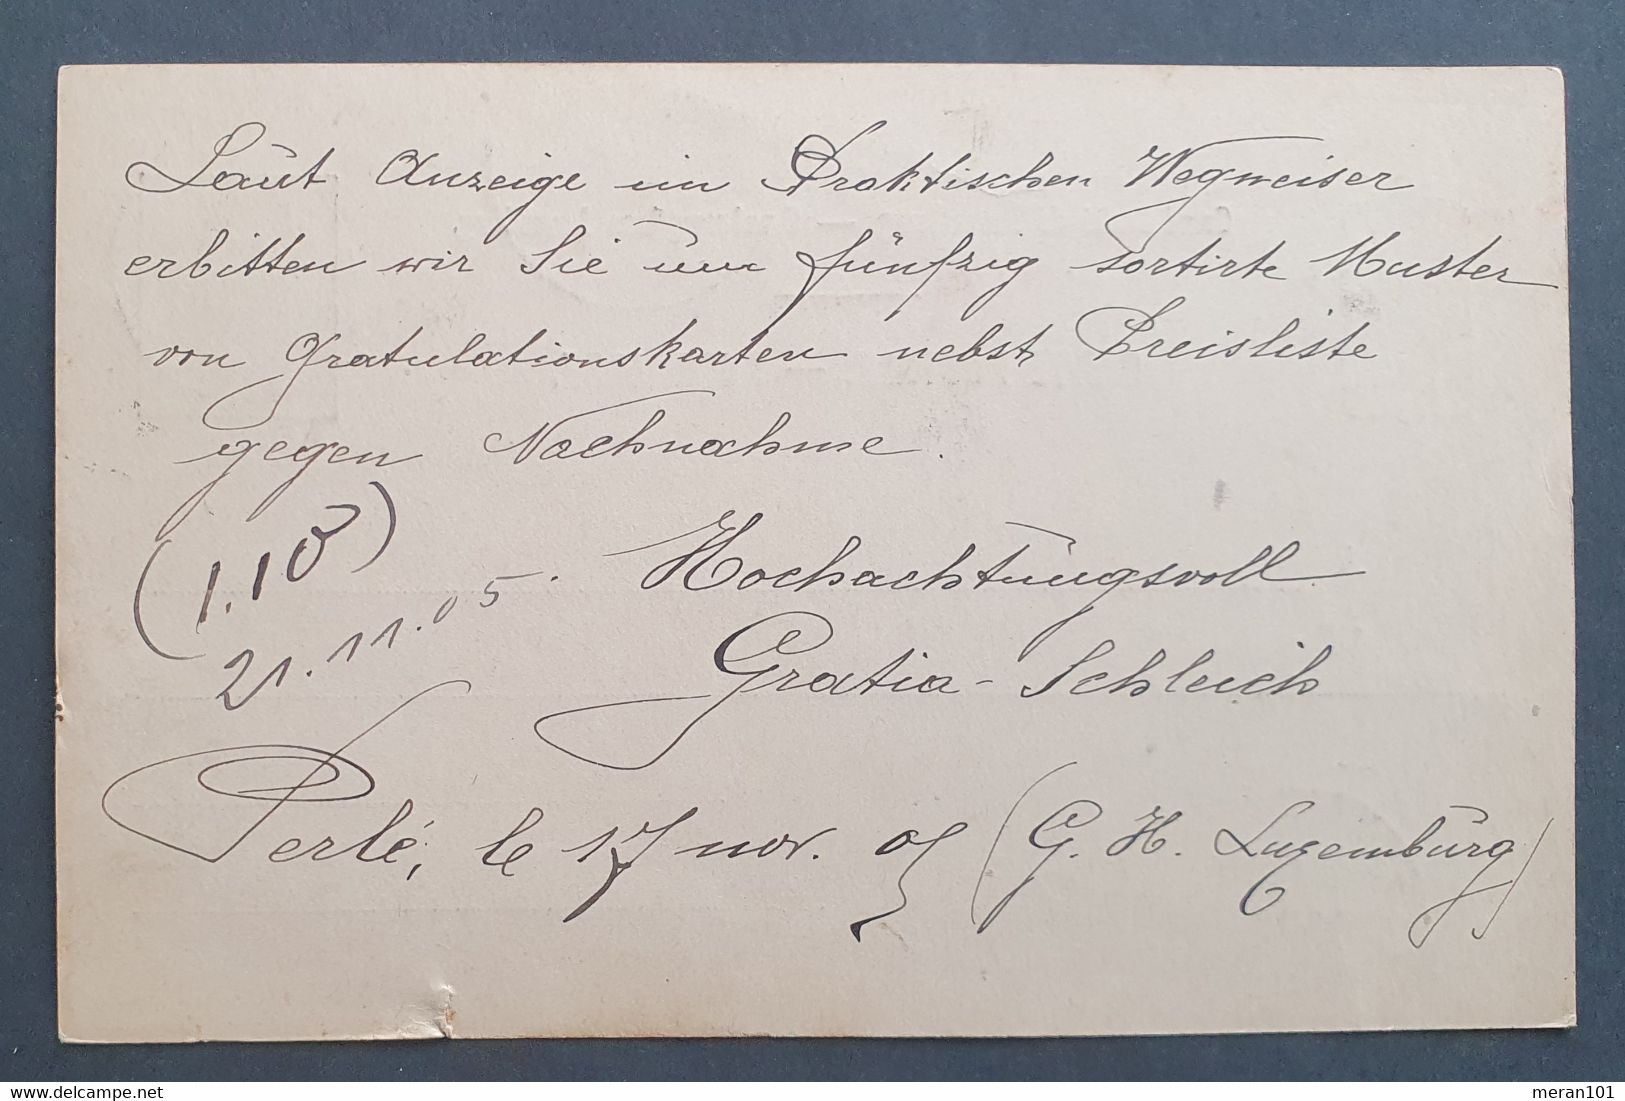 Laut Anzeige im Praktischen Wegweiser
erbitten wir Sie um fünfzig sortirte Muster
von Gratulationskarten nebst Preisliste
gegen Nachnahme.
(1.10)
21.11.05.
Hochachtungsvoll
Gratia-Schleich
Perlé, le 17 nov. 05 (G. H. Luxemburg)
meran101